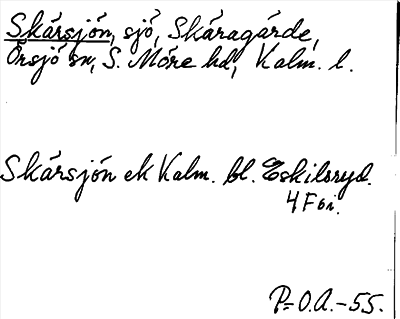 Skärsjön, sjö, Skäragärde,
Örsjö sn, S. Möre hd, Kalm. l.
Skärsjön ek Kalm. bl. Eskilsryd.
4 F ö i.
P-O.A.-55.